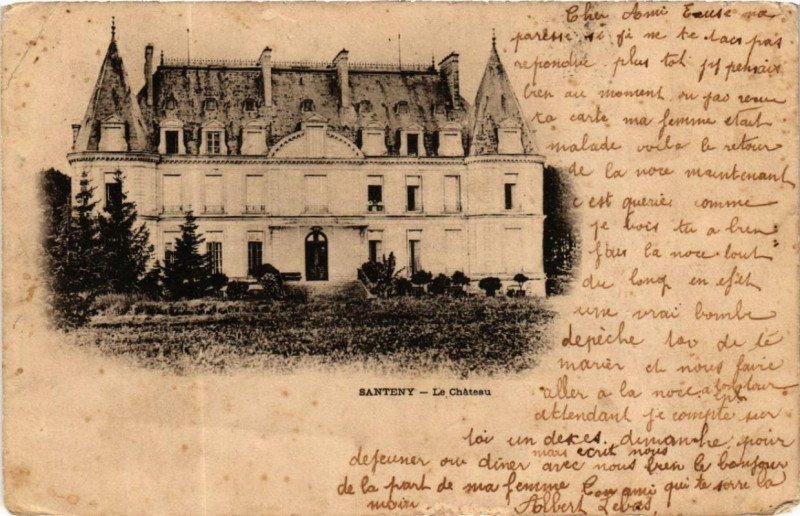 Cher Ami Excuse ma
paresse si je ne te lait pas
repondue plus tot jy pensair
bien au moment ou jas recue
ta carte ma femme etait
malade voila le retour
de la noce maintenant
c est querie comme
je vois tu a bien
fais la noce tout
du long en efêt
une vrai bombe
depèche toi de te
marièr et nous faire
aller a la noce a ton tour
attendant je compte sur
toi un de ces dimanche pour
mais ecrit nous
dejeuner ou diner avec nous bien le bonjour
de la part de ma femme Ton ami qui te serre la
main Albert Lebas
SANTENY — Le Château